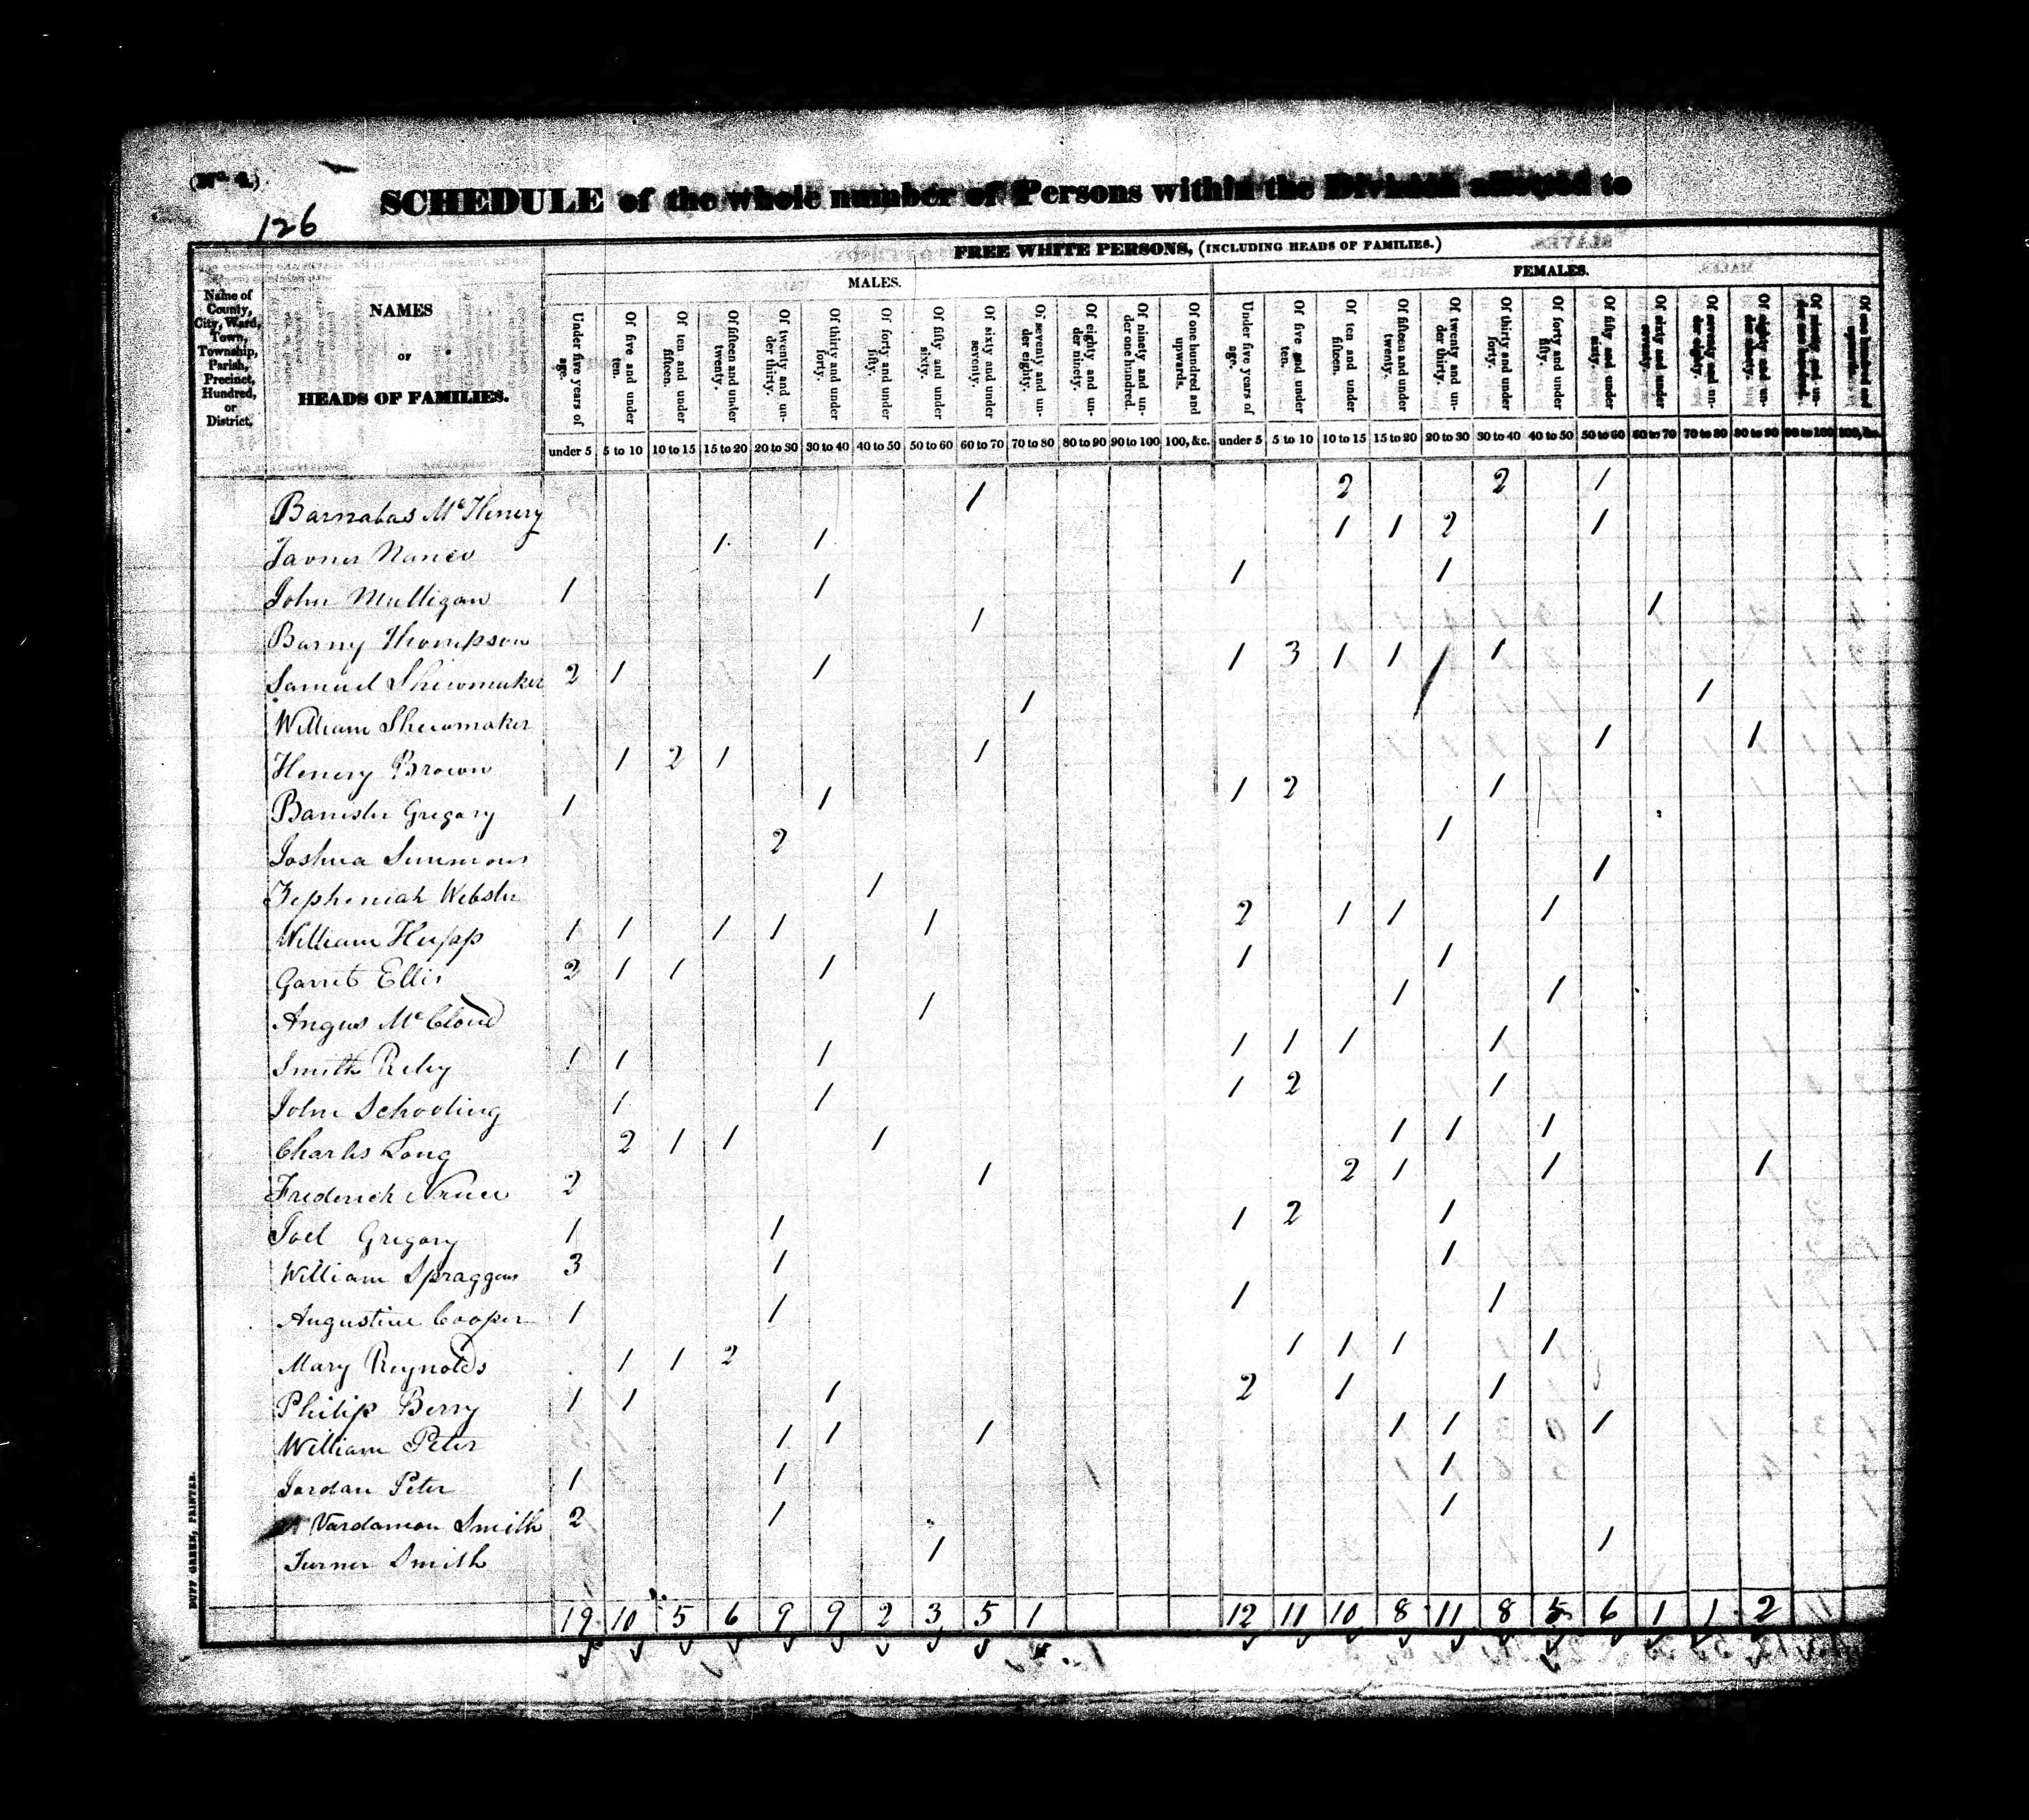 (No. 4.)
SCHEDULE of the whole number of Persons within the Division allotted to
126
FREE WHITE PERSONS, (INCLUDING HEADS OF FAMILIES.)
MALES. FEMALES.
Name of County, City, Ward, Town, Township, Parish, Precinct, Hundred, or District.
NAMES
or
HEADS OF FAMILIES.
Under five years of age. Of five and under ten. Of ten and under fifteen. Of fifteen and under twenty. Of twenty and under thirty. Of thirty and under forty. Of forty and under fifty. Of fifty and under sixty. Of sixty and under seventy. Of seventy and under eighty. Of eighty and under ninety. Of ninety and under one hundred. Of one hundred and upwards. Under five years of age. Of five and under ten. Of ten and under fifteen. Of fifteen and under twenty. Of twenty and under thirty. Of thirty and under forty. Of forty and under fifty. Of fifty and under sixty. Of sixty and under seventy. Of seventy and under eighty. Of eighty and under ninety. Of ninety and under one hundred. Of one hundred and upwards.
under 5 5 to 10 10 to 15 15 to 20 20 to 30 30 to 40 40 to 50 50 to 60 60 to 70 70 to 80 80 to 90 90 to 100 100, &c. under 5 5 to 10 10 to 15 15 to 20 20 to 30 30 to 40 40 to 50 50 to 60 60 to 70 70 to 80 80 to 90 90 to 100 100, &c.
Barnabas McHenery 1 2 2 1
Tavner Nance 1 1 1 1 2 1
John Mulligan 1 1 1 1
Barny Thompson 1 1
Samuel Shewmaker 2 1 1 1 3 1 1 1
William Shewmaker 1 1
Henery Brown 1 2 1 1 1 1
Banister Gregory 1 1 1 2 1
Joshua Simmons 2 1
Zepheniah Webster 1 1
William Hupp 1 1 1 1 1 2 1 1 1
Garret Ellis 2 1 1 1 1 1
Angus McCloud 1 1 1
Smith Riley 1 1 1 1 1 1 1
John Schooling 1 1 1 2 1
Charles Long 2 1 1 1 1 1 1
Frederick 2 1 2 1 1 1
Joel Gregory 1 1 1 2 1
William Spraggens 3 1 1
Augustine Cooper 1 1 1 1
Mary Reynolds 1 1 2 1 1 1 1
Philip Berry 1 1 1 2 1 1
William Peter 1 1 1 1 1 1
Jordan Peter 1 1 1
Vardaman Smith 2 1 1
Turner Smith 1 1
19 10 5 6 9 9 2 3 5 1 12 11 10 8 11 8 5 6 1 1 2
DUFF GREEN, PRINTER.